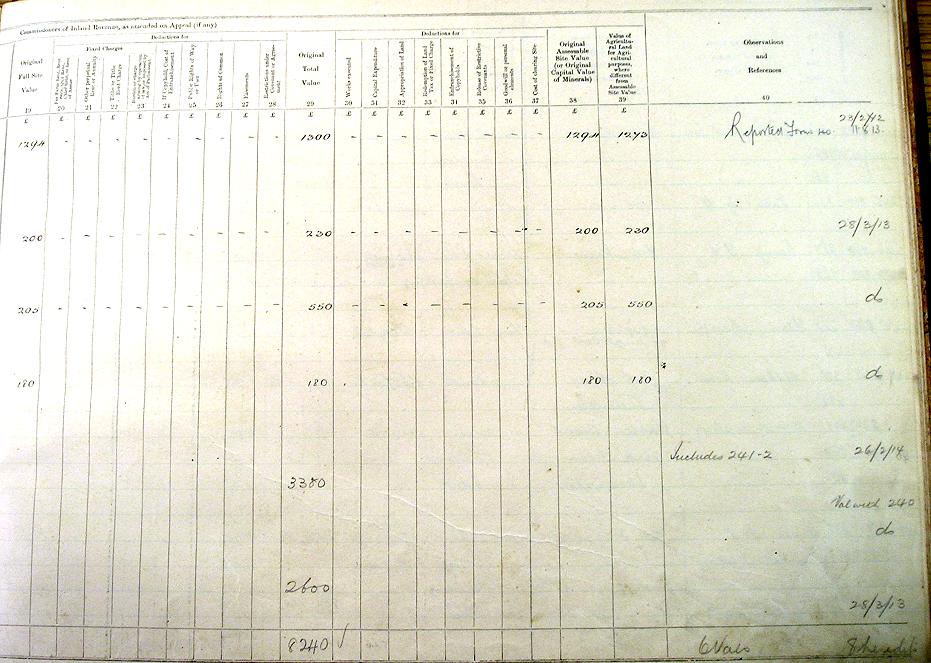 Commissioners of Inland Revenue, as amended on Appeal (if any)
Deductions for
Deductions for
Fixed Charges
Original Full Site Value
Other perpetual Rent or Annuity
Tithe or Tithe Rent Charge
If Copyhold, Cost of Enfranchisement
Public Rights of Way or User
Rights of Common
Easements
Restrictions under Covenant or Agreement
Original Total Value
Works executed
Capital Expenditure
Appropriation of Land
Redemption of Land Tax or Fixed Charge
Enfranchisement of Copyholds
Release of Restrictive Covenants
Goodwill or personal elements
Cost of clearing Site
Original Assessable Site Value (or Original Capital Value of Minerals)
Value of Agricultural Land for Agricultural purposes, where different from Assessable Site Value
Observations and References
19 20 21 22 23 24 25 26 27 28 29 30 31 32 33 34 35 36 37 38 39 40
£ £ £ £ £ £ £ £ £ £ £ £ £ £ £ £ £ £ £ £ £
23/2/12
1294 - - - - - - - - - 1300 - - - - - - - - 1294 1273 Reported Form no. 11.6.13.
200 - - - - - - - - - 230 - - - - - - - - 200 230 28/3/13
205 - - - - - - - - - 550 - - - - - - - - 205 550 do
180 180 180 180 do
Includes 241-2 26/2/14
3380
Val with 240
do
2600
28/3/13
8240 √ 6 Vals